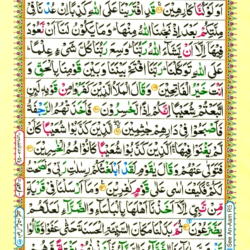 اَوَلَوْ كُنَّا كَارِهِيْنَ قَدِ افْتَرَيْنَا عَلَى اللّٰهِ كَذِبًا اِنْ عُدْنَا فِيْ
مِلَّتِكُمْ بَعْدَ اِذْ نَجّٰىنَا اللّٰهُ مِنْهَا وَمَا يَكُوْنُ لَنَاۤ اَنْ نَّعُوْدَ
فِيْهَاۤ اِلَّاۤ اَنْ يَّشَآءَ اللّٰهُ رَبُّنَا وَسِعَ رَبُّنَا كُلَّ شَيْءٍ عِلْمًا
عَلَى اللّٰهِ تَوَكَّلْنَا رَبَّنَا افْتَحْ بَيْنَنَا وَبَيْنَ قَوْمِنَا بِالْحَقِّ وَ
اَنْتَ خَيْرُ الْفٰتِحِيْنَ وَقَالَ الْمَلَاُ الَّذِيْنَ كَفَرُوْا مِنْ قَوْمِهٖ لَئِنِ
اتَّبَعْتُمْ شُعَيْبًا اِنَّكُمْ اِذًا لَّخٰسِرُوْنَ فَاَخَذَتْهُمُ الرَّجْفَةُ
فَاَصْبَحُوْا فِيْ دَارِهِمْ جٰثِمِيْنَ الَّذِيْنَ كَذَّبُوْا شُعَيْبًا كَاَنْ
لَّمْ يَغْنَوْا فِيْهَا اَلَّذِيْنَ كَذَّبُوْا شُعَيْبًا كَانُوْا هُمُ الْخٰسِرِيْنَ
فَتَوَلّٰى عَنْهُمْ وَقَالَ يٰقَوْمِ لَقَدْ اَبْلَغْتُكُمْ رِسٰلٰتِ رَبِّيْ وَنَصَحْتُ
لَكُمْ فَكَيْفَ اٰسٰى عَلٰى قَوْمٍ كٰفِرِيْنَ وَمَاۤ اَرْسَلْنَا فِيْ قَرْيَةٍ
مِّنْ نَّبِيٍّ اِلَّاۤ اَخَذْنَاۤ اَهْلَهَا بِالْبَاْسَآءِ وَالضَّرَّآءِ لَعَلَّهُمْ
يَضَّرَّعُوْنَ ثُمَّ بَدَّلْنَا مَكَانَ السَّيِّئَةِ الْحَسَنَةَ حَتّٰى عَفَوْا وَّقَالُوْا